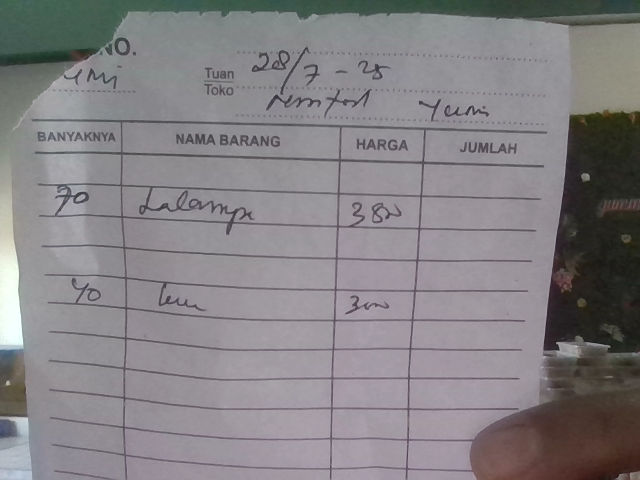 NO.
Tuan 28/7-25
Toko
Yumi
BANYAKNYA NAMA BARANG HARGA JUMLAH
70 Lalampa 3800
40 3000